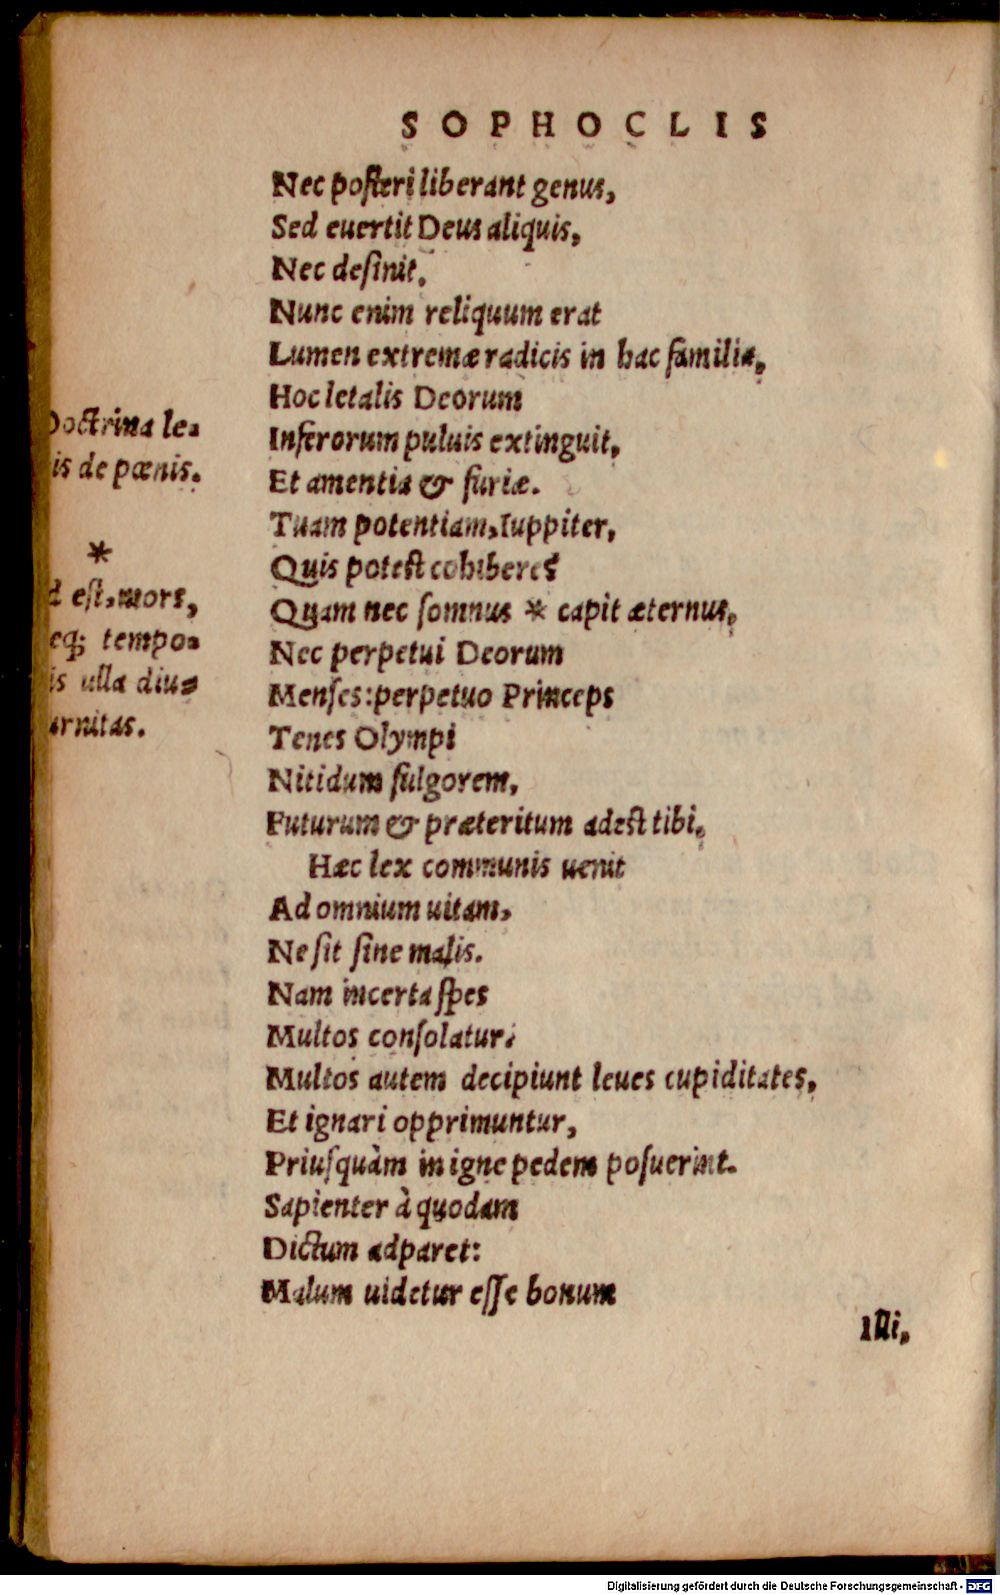 SOPHOCLIS
Nec posteri liberant genus,
Sed euertit Deus aliquis,
Nec desinit.
Nunc enim reliquum erat
Lumen extremæ radicis in hac familia,
Hoc letalis Deorum
Inferorum puluis extinguit,
Et amentia & furiæ.
Tuam potentiam, Iuppiter,
Quis potest cohibere?
Quam nec somnus * capit æternus,
Nec perpetui Deorum
Menses: perpetuo Princeps
Tenes Olympi
Nitidum fulgorem,
Futurum & præteritum adest tibi.
Hæc lex communis uenit
Ad omnium uitam,
Ne sit sine malis.
Nam incerta spes
Multos consolatur.
Multos autem decipiunt leues cupiditates,
Et ignari opprimuntur,
Priusquàm in igne pedem posuerint.
Sapienter à quodam
Dictum adparet:
Malum uidetur esse bonum
Illi,
Doctrina le-
is de pœnis.
*
d est, mors,
eq; tempo-
is ulla diu-
urnitas.
Digitalisierung gefördert durch die Deutsche Forschungsgemeinschaft - DFG